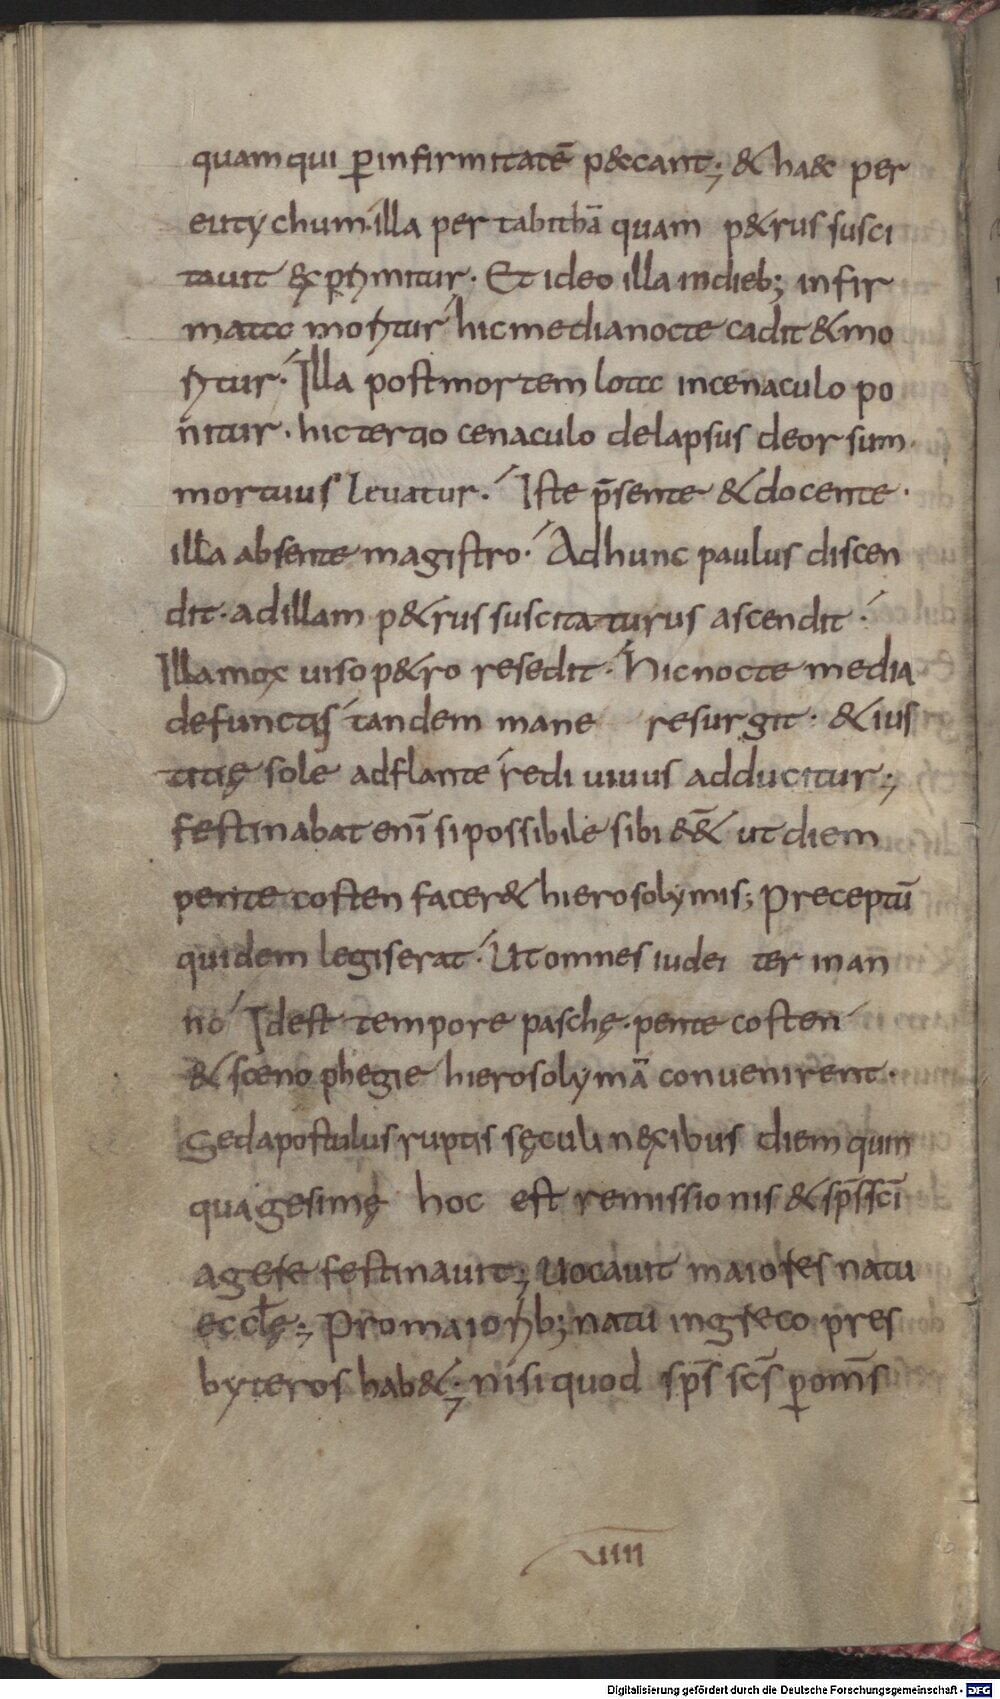 quam qui ꝑ infirmitatē p&cant; & ha&c per
eutychum. illa per tabithā quam p&rus susci
tauit exprimitur. Et ideo illa in dieb; infir
matᷓ moritur hic media nocte cadit & mo
ritur. Illa post mortem lota in cenaculo po
nitur. hic tertio cenaculo delapsus deorsum.
mortuus levatur. Iste p̄sente & docente.
illa absente magistro. Ad hunc paulus discen
dit. ad illam p&rus suscitaturus ascendit.
Illa mox uiso p&ro resedit. Hic nocte media
defunctus tandem mane resurgit. & ius
titię sole adflante redi uiuus adducitur;
festinabat enī si possibile sibi ēēt ut diem
pente costen facer& hierosolymis; Preceptū
quidem legis erat. Ut omnes iudei ter in an
no Id est tempore paschę. pente costen
& sceno phegie hierosolymā convenirent.
Sed apostulus ruptis sęculi nexibus diem quin
quagesimę hoc est remissionis & sp̄s sc̄i
agere festinauit; Uocauit maiores natu
eccłę; Pro maiorib; natu in greco pres
byteros hab&; nisi quod sp̄s sc̄s ꝑ om̄s
VIIII
Digitalisierung gefördert durch die Deutsche Forschungsgemeinschaft - DFG